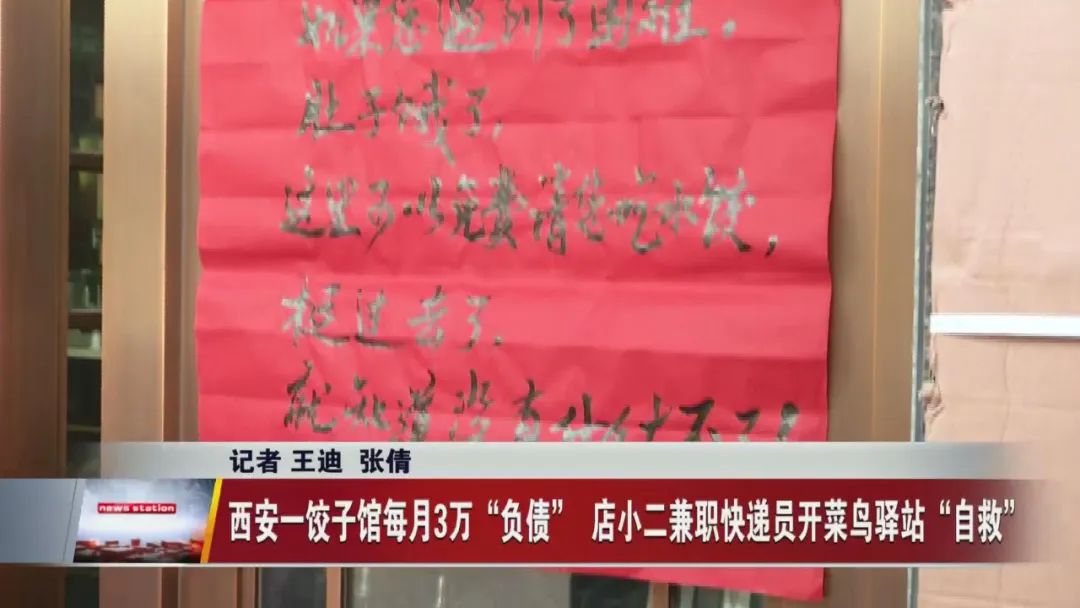 如果您遇到了困难。
肚子饿了，
这里可以免费请您吃水饺，
挺过去了，
就知道没有什么大不了！
记者 王迪 张倩
news station
西安一饺子馆每月3万“负债” 店小二兼职快递员开菜鸟驿站“自救”